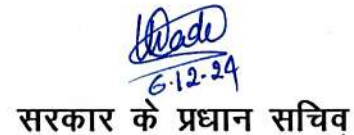 6.12.24
सरकार के प्रधान सचिव